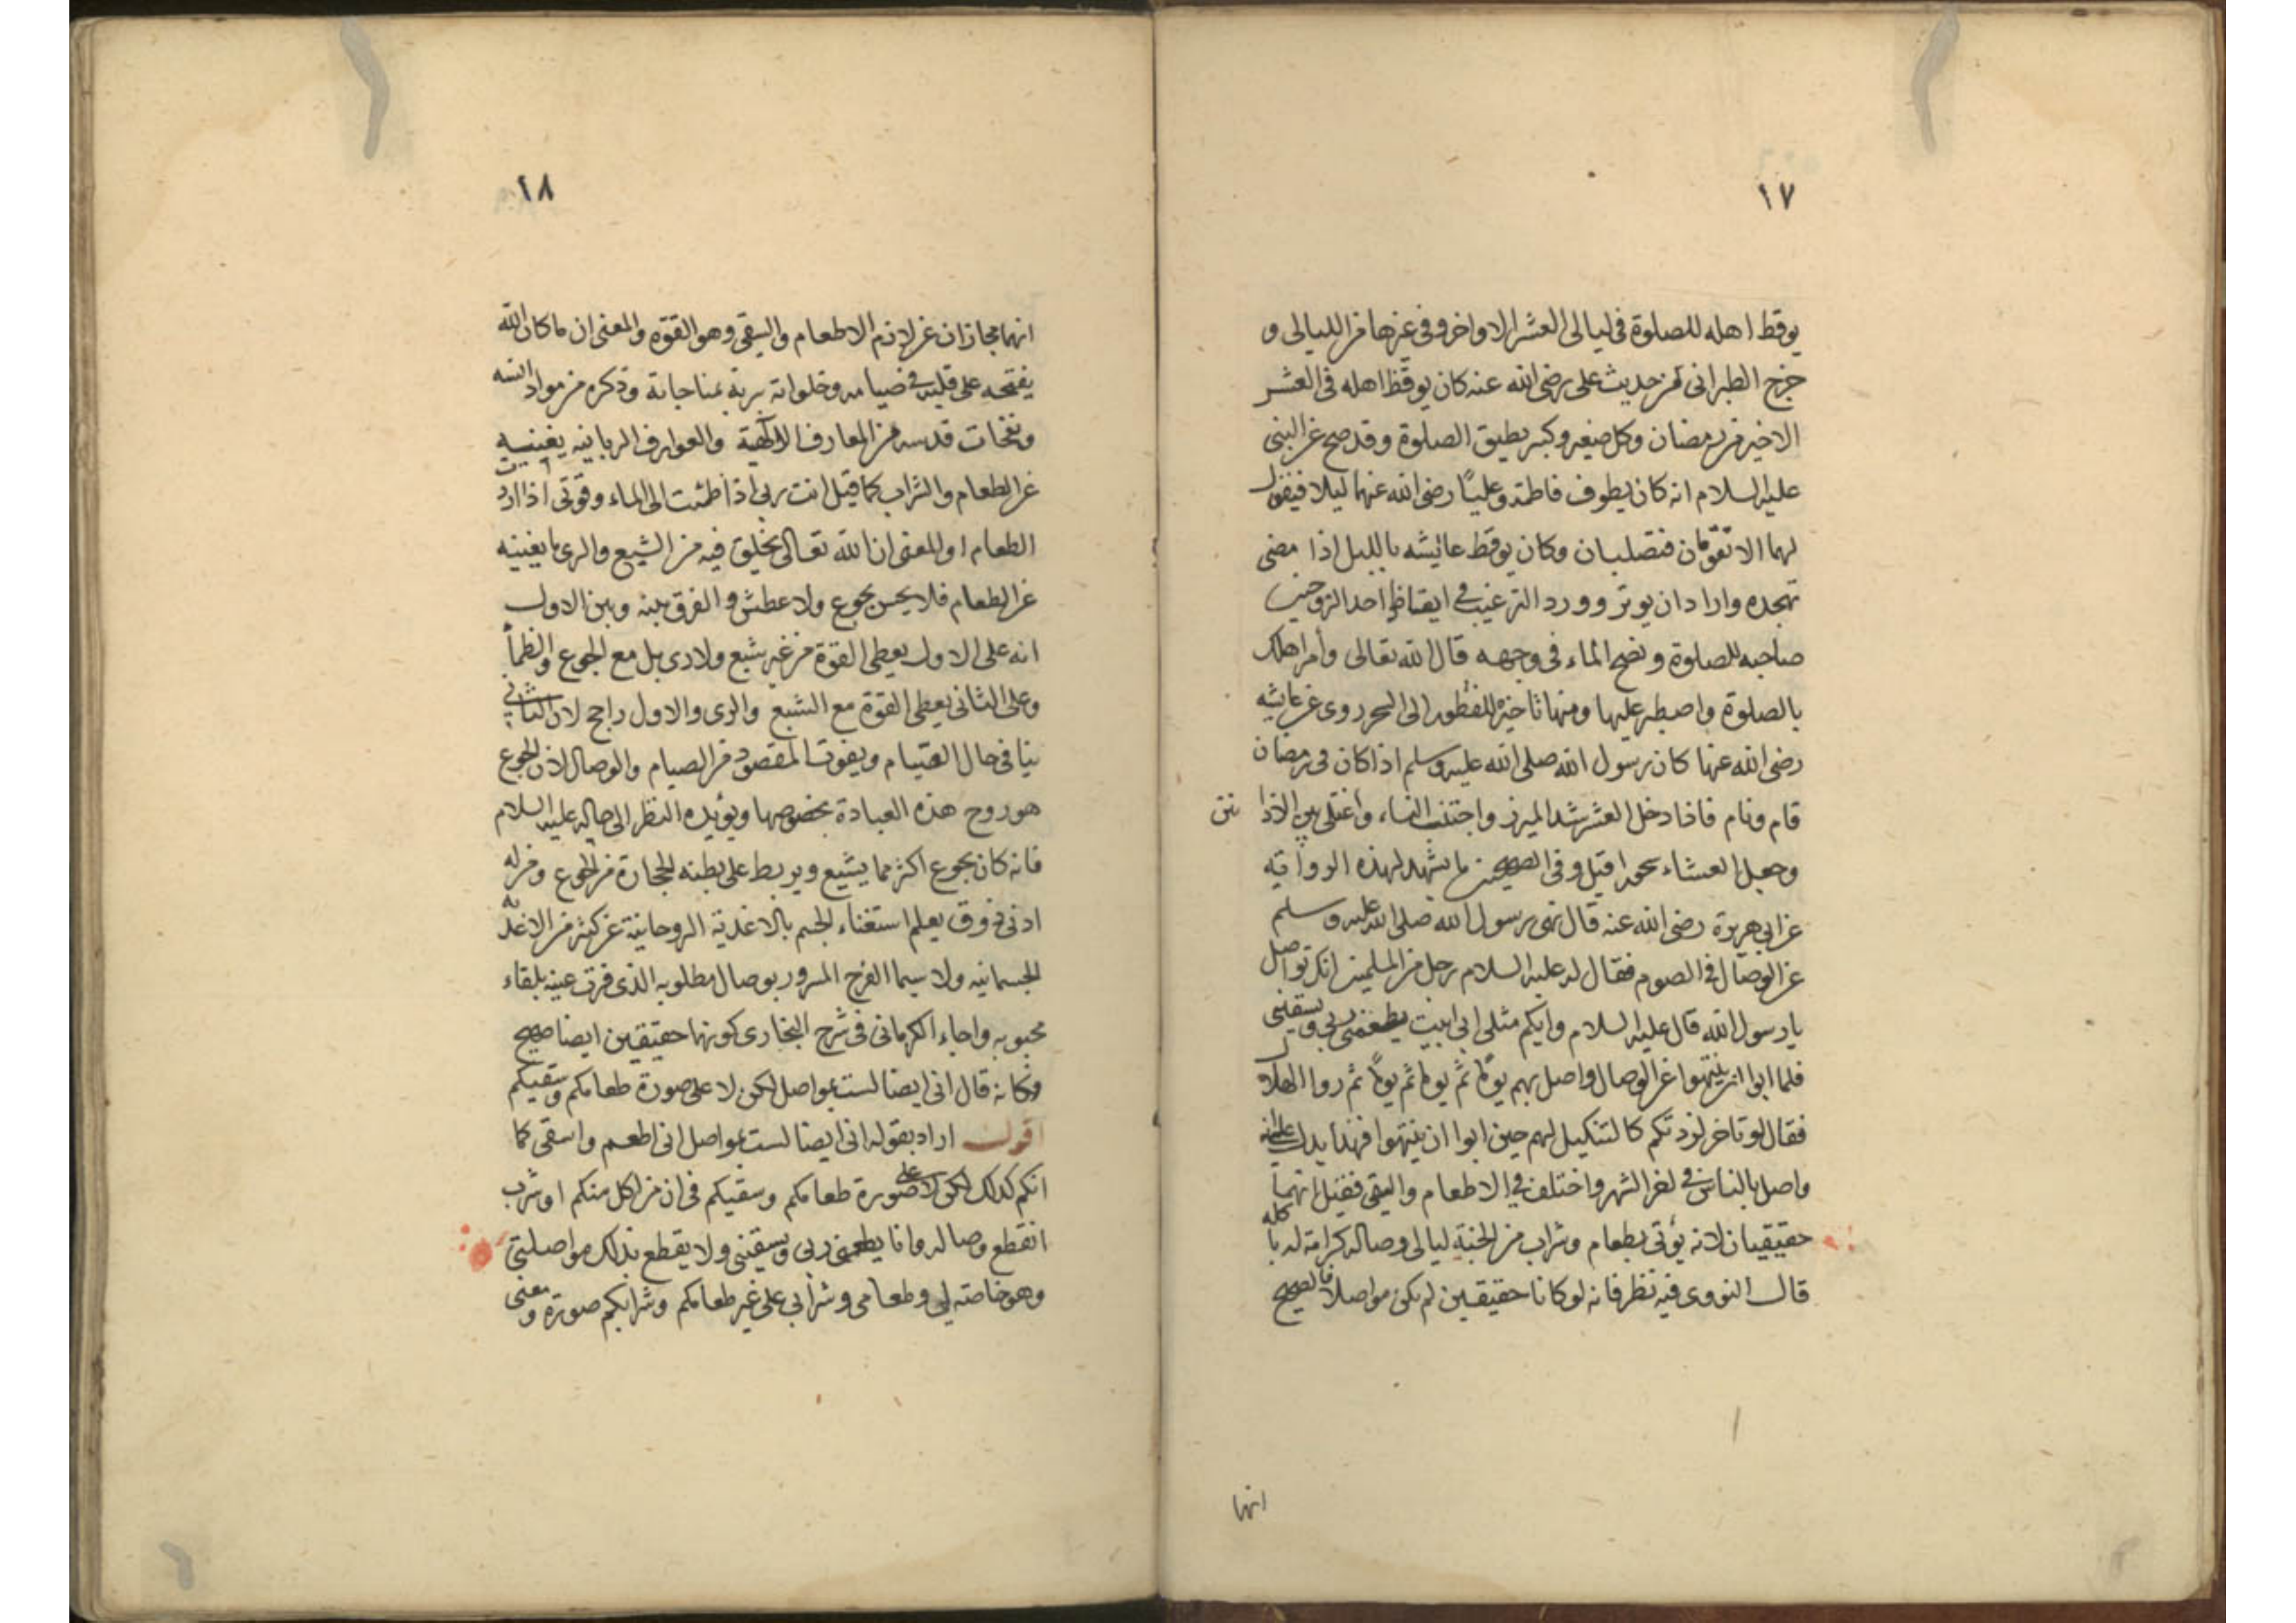 ١٧
يوقظ اهله للصلوة فى ليالى العشر الاواخر وفى غيرها من الليالى و
خرج الطبرانى من حديث على رضى الله عنه كان يوقظ اهله فى العشر
الاخير من رمضان وكل صغير وكبير يطيق الصلوة وقد صح عن النبى
عليه السلام انه كان يطوف فاطمة وعليًا رضى الله عنهما ليلا فيقول
لهما الا تقومان فتصليان وكان يوقظ عايشه بالليل اذا مضى
تهجده واراد ان يوتر وورد الترغيب فى ايقاظ احد الزوجين
صاحبه للصلوة ونضح الماء فى وجهه قال الله تعالى وأمر اهلك
بالصلوة واصطبر عليها ومنها تاخيره للفطور الى السحر روى عن عايشه
رضى الله عنها كان رسول الله صلى الله عليه وسلم اذا كان فى رمضان
قام ونام فاذا دخل العشر شد الميزر واجتنب النساء واغتسل بين الاذا نين
وجعل العشاء سحورا قيل وفى الصحيحين ما يشهد لهذه الرواية
عن ابى هريرة رضى الله عنه قال نهى رسول الله صلى الله عليه وسلم
عن الوصال فى الصوم فقال له عليه السلام رجل من المسلمين انك تواصل
يا رسول الله قال عليه السلام وايكم مثلى انى ابيت يطعمنى ربى ويسقينى
فلما ابوا ان ينتهوا عن الوصال واصل بهم يومًا ثم يوما ثم يومًا ثم روا الهلال
فقال لو تاخر لزدتكم كالتنكيل لهم حين ابوا ان ينتهوا فهذا يدل على انه
واصل بالناس فى اخر الشهر واختلف فى الاطعام والسقى فقيل انهما
حقيقيان لانه يؤتى بطعام وشراب من الجنة ليالى وصاله كرامة له با كله
قال النووى فيه نظر فانه لو كانا حقيقين لم يكن مواصلا فالصحيح
انهما
١٨
انهما مجازان عن لازم الاطعام والسقى وهو القوة والمعنى ان ما كان الله
يفتحه على قلبه فى صيامه وخلواته بربه بمناجاته وذكره من مواد انسه
ونفحات قدسه من المعارف الالهية والعوارف الربانيه يغنيه
عن الطعام والشراب كما قيل انت ربى اذا ظمئت الى الماء وقوتى اذا اردت
الطعام او المعنى ان الله تعالى يخلق فيه من الشبع والرى ما يغنيه
عن الطعام فلا يحس بجوع ولا عطش والفرق بينه وبين الاول
انه على الاول يعطى القوة من غير شبع ولا رى بل مع الجوع والظمأ
وعلى الثانى يعطى القوة مع الشبع والرى والاول راجح لان الثانى
ينافى حال الصيام ويفوت المقصود من الصيام والوصال لان الجوع
هو روح هذه العبادة بخصوصها ويؤيده النظر الى حاله عليه السلام
فانه كان يجوع اكثر مما يشبع ويربط على بطنه الحجارة من الجوع ومن له
ادنى ذوق يعلم استغناء الجسم بالاغذية الروحانية عن كثير من الاغذيه
الجسمانيه ولا سيما الفرح المسرور بوصال مطلوبه الذى قرت عينه بلقاء
محبوبه واجاء الكرمانى فى شرح البخارى كونهما حقيقين ايضا صحيح
وكانه قال انى ايضا لست بمواصل لكن لا على صورة طعامكم وسقيكم
اقول اراد بقوله انى ايضا لست بمواصل انى اطعم واسقى كما
انكم كذلك لكن لا على صورة طعامكم وسقيكم فى ان من اكل منكم او شرب
انقطع وصاله وانا يطعمنى ربى ويسقينى ولا يقطع بذلك مواصلتى
وهو خاصته لى وطعامى وشرابى على غير طعامكم وشرابكم صورة ومعنى